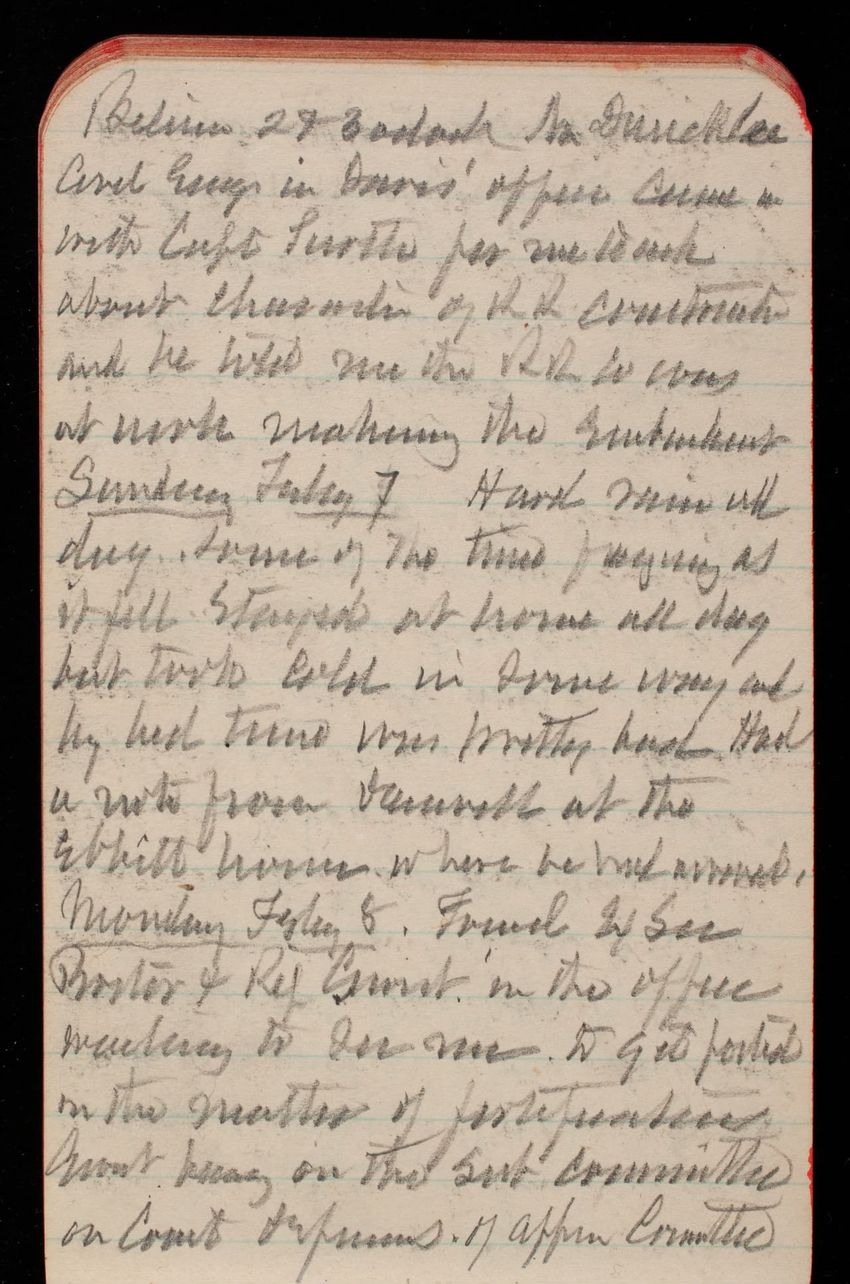 Between 2 & 3 o'clock Mr
Civil Engr in Davis' office came in
with Capt Suttle for me to ask
about character of RR construction
and he told me the RR Co was
at work making the Embankment
Sunday Feby 7 Hard rain all
day. Some of the time freezing as
it fell Stayed at home all day
but took cold in some way and
by bed time was pretty bad Had
a note from at the
Ebbitt house where he had arrived.
Monday Feby 8. Found Ex Sec
Proctor & Rep Grout in the office
waiting to see me. to get posted
on the matter of fortifications
Grout being on the sub committee
on Coast defenses. of appn Committee